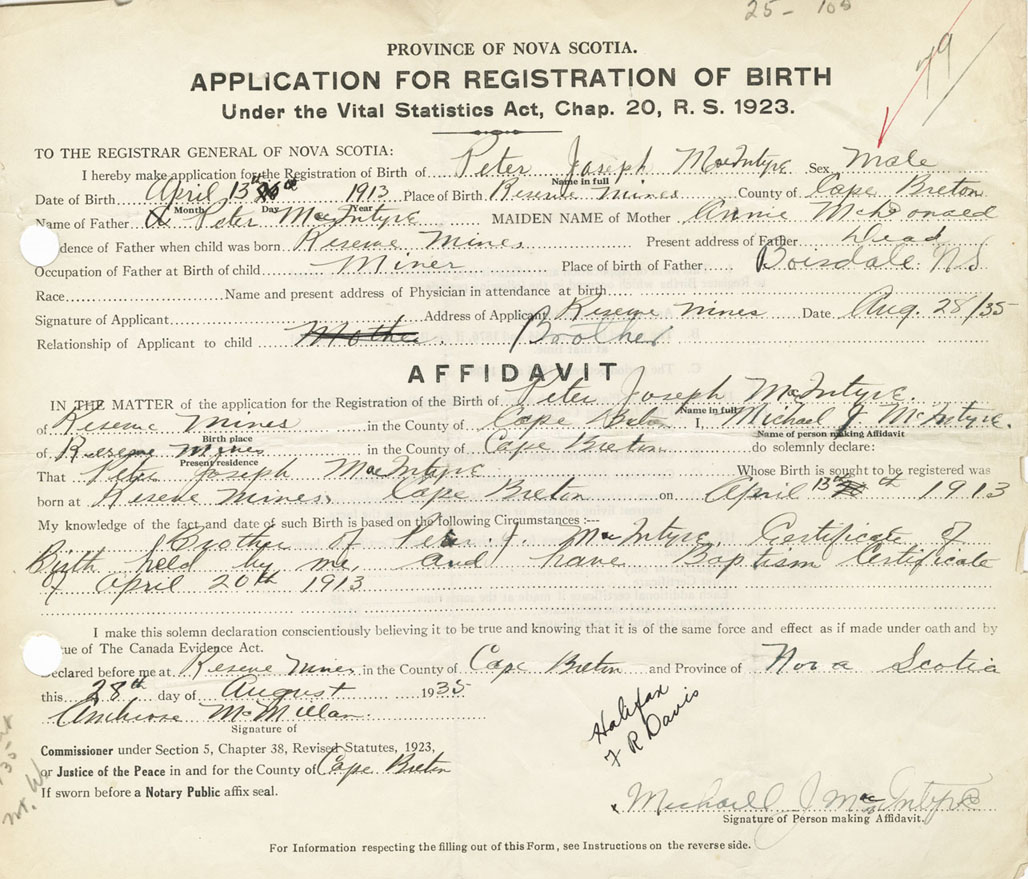 25-
79
PROVINCE OF NOVA SCOTIA.
APPLICATION FOR REGISTRATION OF BIRTH
Under the Vital Statistics Act, Chap. 20, R. S. 1923.
TO THE REGISTRAR GENERAL OF NOVA SCOTIA:
I hereby make application for the Registration of Birth of Peter Joseph MacIntyre Sex Male
Name in full
Date of Birth April 13th 1913 Place of Birth Reserve Mines County of Cape Breton
Month Day Year
Name of Father Peter MacIntyre MAIDEN NAME of Mother Annie McDonald
dence of Father when child was born Reserve Mines Present address of Father Dead
Occupation of Father at Birth of child Miner Place of birth of Father Boisdale NS
Race Name and present address of Physician in attendance at birth
Signature of Applicant Address of Applicant Reserve mines Date Aug. 28/35
Relationship of Applicant to child Mother Brother
AFFIDAVIT
IN THE MATTER of the application for the Registration of the Birth of Peter Joseph MacIntyre.
Name in full
of Reserve mines in the County of Cape Breton I, Michael J. McIntyre.
Birth place Name of person making Affidavit
of Reserve Mines in the County of Cape Breton do solemnly declare:
Present residence
That Peter Joseph MacIntyre Whose Birth is sought to be registered was
born at Reserve Mines, Cape Breton on April 13th th 1913
My knowledge of the fact and date of such Birth is based on the following Circumstances :---
Brother of Peter J. MacIntyre, Certificate of
Birth held by me, and have Baptism Certificate
of April 20th 1913
I make this solemn declaration conscientiously believing it to be true and knowing that it is of the same force and effect as if made under oath and by
tue of The Canada Evidence Act.
Declared before me at Reserve Mines in the County of Cape Breton and Province of Nova Scotia
this 28th day of August 1935
Ambrose McMillan.
Signature of
Halifax
F R Davis
Commissioner under Section 5, Chapter 38, Revised Statutes, 1923,
or Justice of the Peace in and for the County of Cape Breton
If sworn before a Notary Public affix seal.
x Michael J MacIntyre
Signature of Person making Affidavit.
For Information respecting the filling out of this Form, see Instructions on the reverse side.